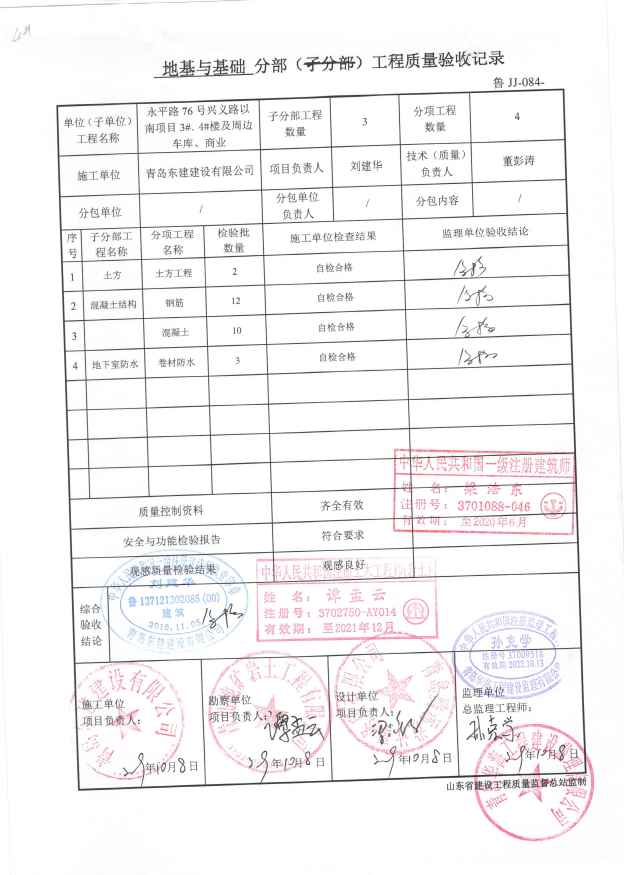 地基与基础 分部（子分部）工程质量验收记录
鲁 JJ-084-
单位（子单位）工程名称 永平路 76 号兴义路以南项目 3#、4#楼及周边车库、商业 子分部工程数量 3 分项工程数量 4
施工单位 青岛东建建设有限公司 项目负责人 刘建华 技术（质量）负责人 董彭涛
分包单位 / 分包单位负责人 / 分包内容 /
序号 子分部工程名称 分项工程名称 检验批数量 施工单位检查结果 监理单位验收结论
1 土方 土方工程 2 自检合格 合格
2 混凝土结构 钢筋 12 自检合格 合格
3 混凝土 10 自检合格 合格
4 地下室防水 卷材防水 3 自检合格 合格
中华人民共和国一级注册建筑师
姓 名：梁浩东
注册号：3701088-046
有效期：至2020年6月
质量控制资料 齐全有效
安全与功能检验报告 符合要求
观感质量检验结果 观感良好
刘建华
鲁137121302085(00)
建筑
2018.11.05
姓 名：谭孟云
注册号：3702750-AY014
有效期：至2021年12月
综合验收结论 合格
孙克学
注册号37009518
有效期2022.10.13
施工单位
项目负责人：
29年10月8日
勘察单位
项目负责人：谭孟云
29年10月8日
设计单位
项目负责人：
29年10月8日
监理单位
总监理工程师：
孙克学
29年10月8日
山东省建设工程质量监督总站监制